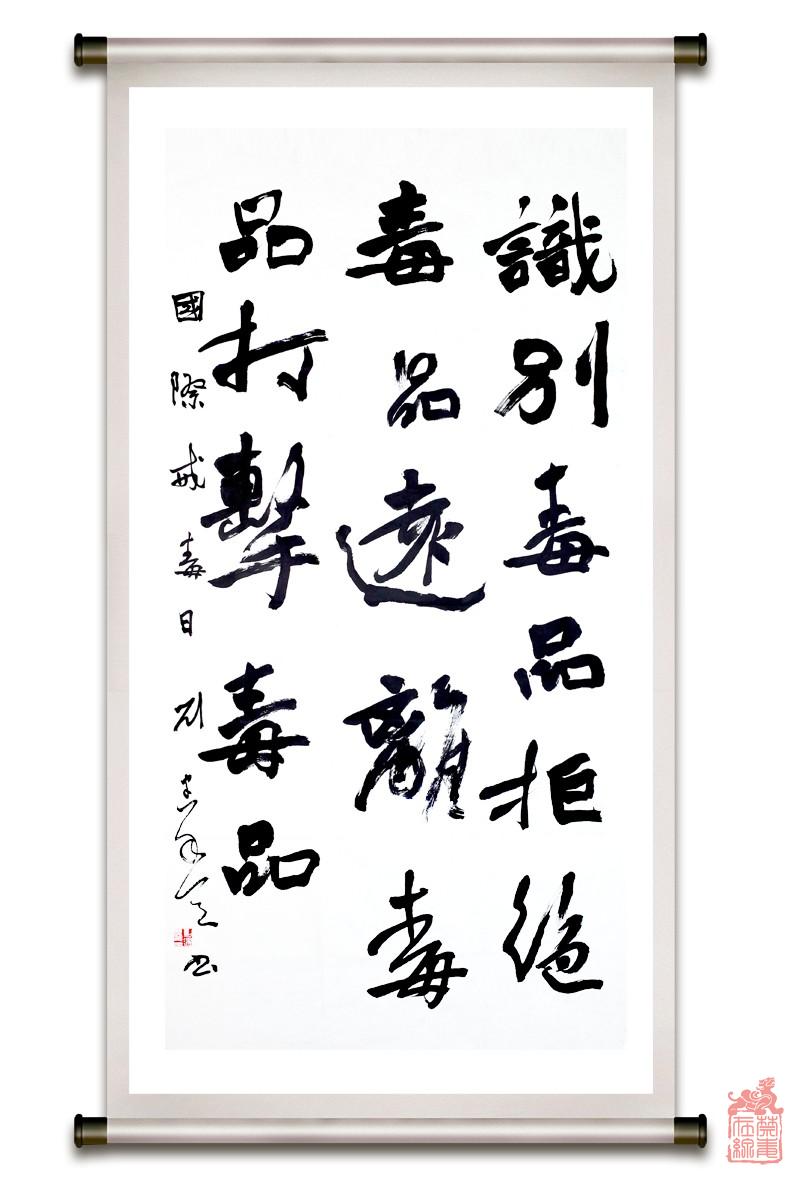 識別毒品拒絕
毒品遠離毒
品打擊毒品
國際戒毒日 刘
书